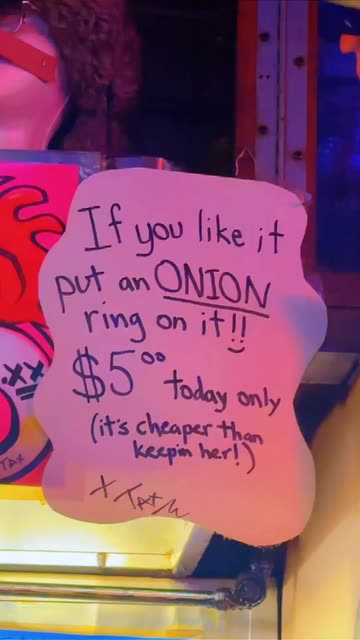 If you like it
put an ONION
ring on it!!
$5⁰⁰ today only
(it's cheaper than
keepin her!)